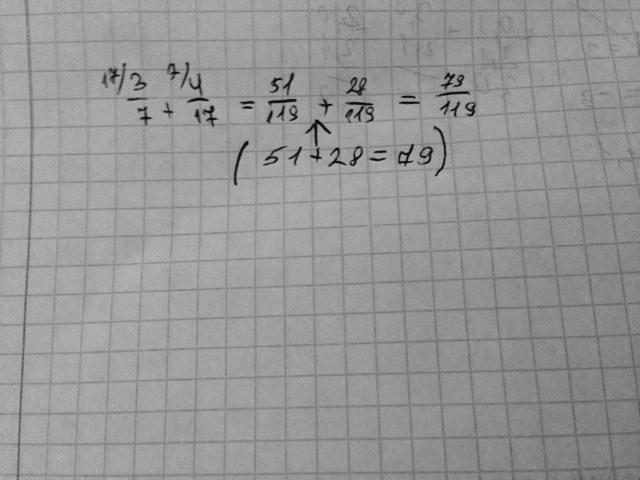 17/3/7 + 7/4/17 = 51/119 + 28/119 = 79/119
(51+28=79)